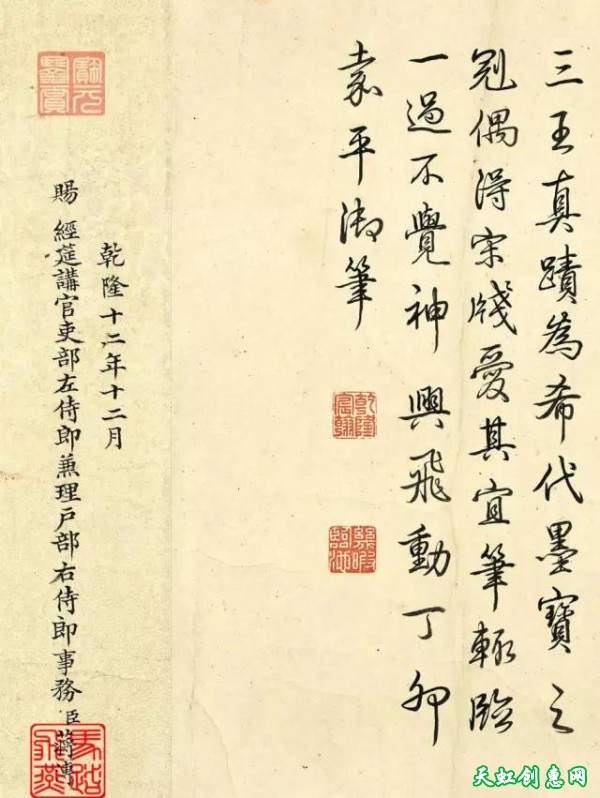 三王真蹟為希代墨寶之
冠偶得宋牋愛其宜筆輙臨
一過不覺神興飛動丁卯
嘉平御筆
乾隆宸翰
幾暇臨池
乾隆十二年十二月
賜 經筵講官吏部左侍郎兼理戶部右侍郎事務臣蔣溥
天虹创意网